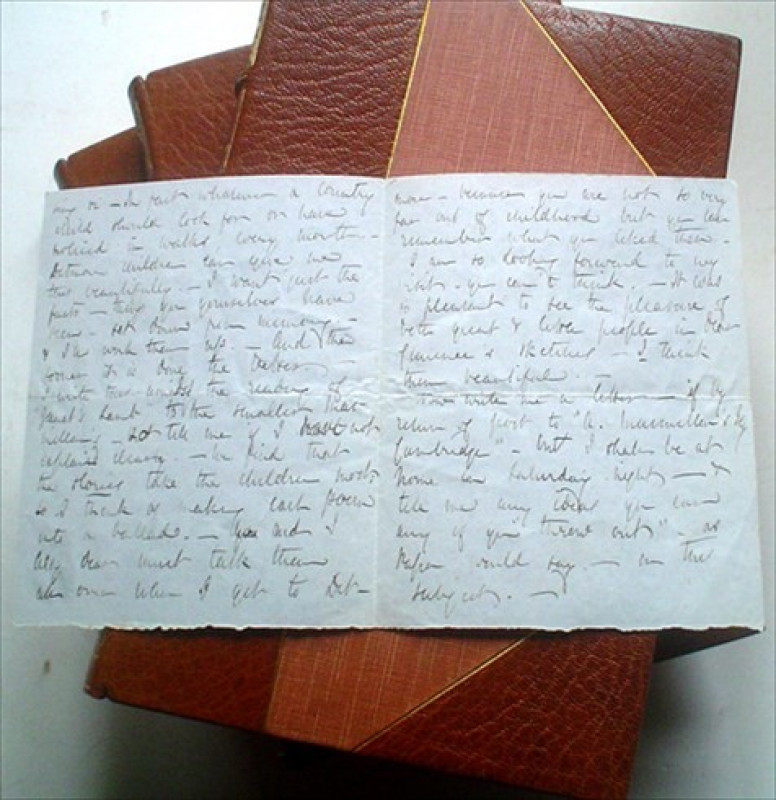 in fact whatever a Country
child should look for or have
noticed in walks, every month -
Detmar children can give me
this beautifully - I want just the
facts - things you yourselves have
seen - set down from memory -
& I'll work them up - And the
sooner it is done the better -
I write this amidst the reading of
to the smallest that
tell me if I have not
explained clearly. - We find that
the stories take the children most
so I think of making each poem
into a ballad. - You and I
dear must talk them
all over when I get to Det-
more - because you are not so very
far out of childhood but you can
remember what you liked then. -
I am so looking forward to my
visit - you can't think. - It was
so pleasant to see the pleasure of
both great & little people in dear
sketches - I think
them beautiful. -
Now write me a letter - if by
return of post to "A. Macmillan's Esq
Cambridge" - but I shall be at
home on Saturday night - &
tell me any ideas you can
any of you "throw out" - as
Papa would say - on the
subject. -